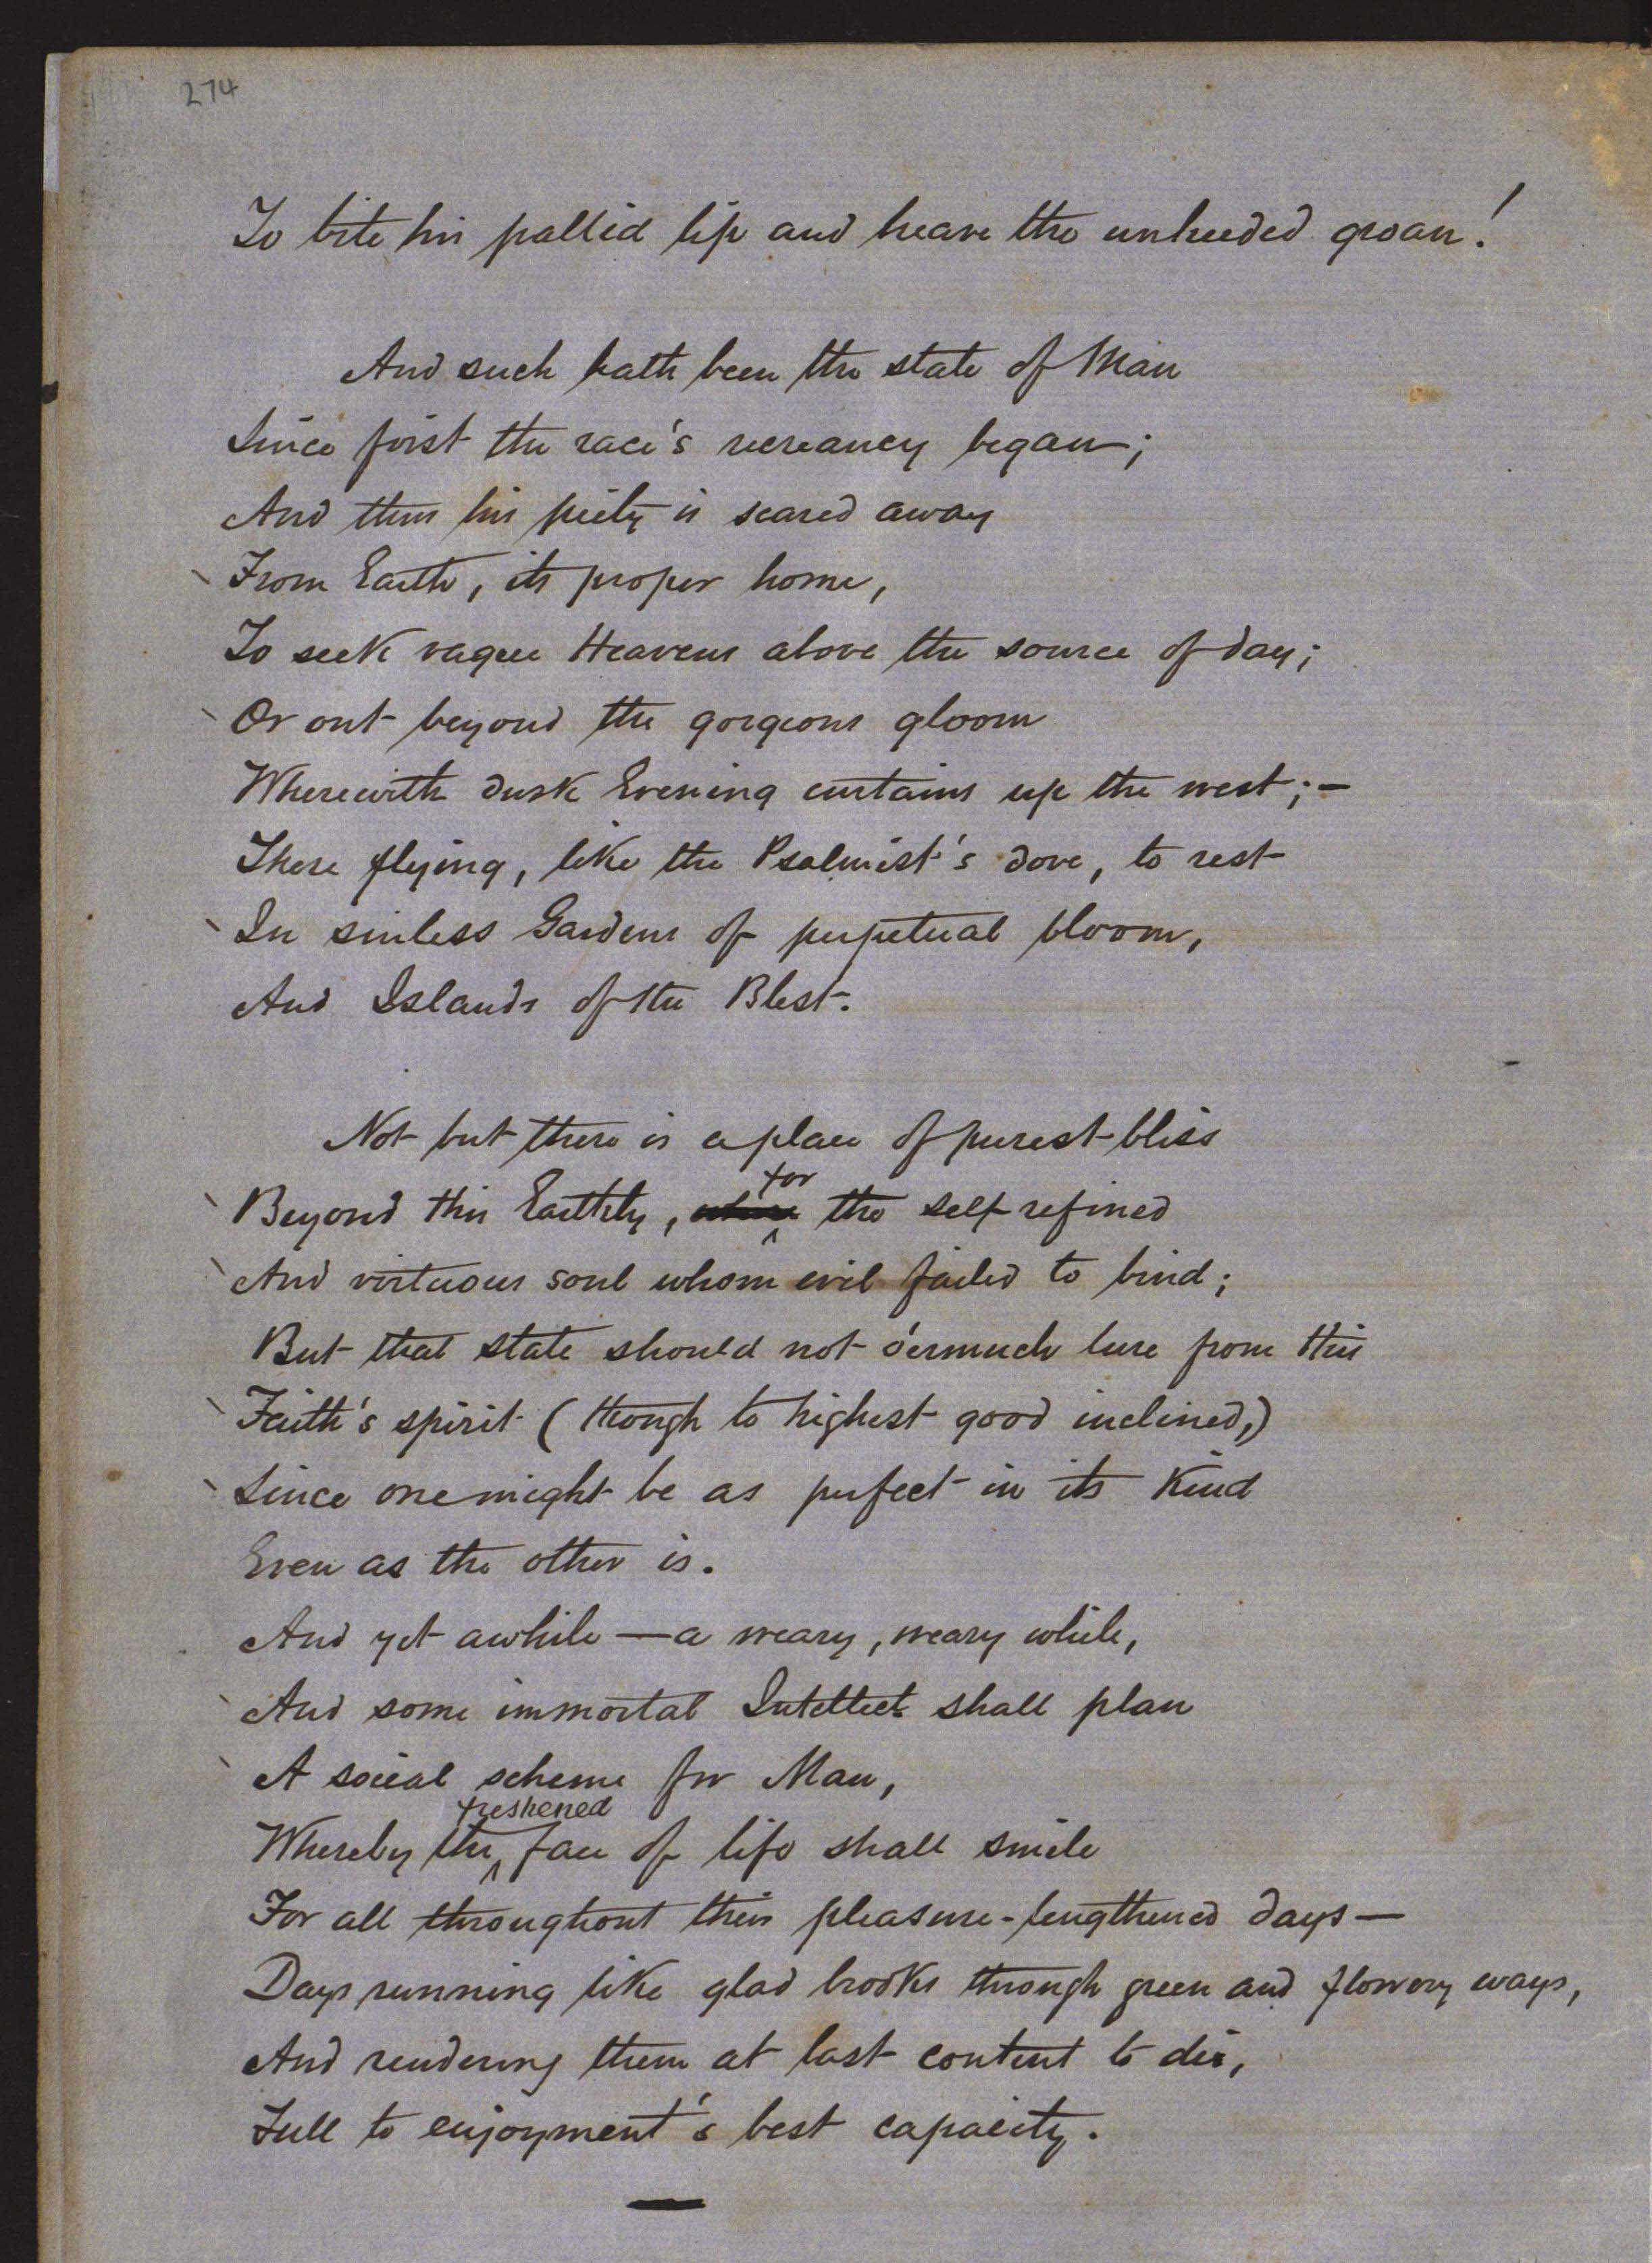 274
To bite his pallid lip and heave the unheeded groan!
And such hath been the state of Man
Since first the race's recreancy began;
And thus his piety is scared away
From Earth, its proper home,
To seek vague Heavens above the source of day;
Or out beyond the gorgeous gloom
Wherewith dusk Evening curtains up the west;—
There flying, like the Psalmist's dove, to rest
In sinless Gardens of perpetual bloom,
And Islands of the Blest.
Not but there is a place of purest bliss
for
Beyond this Earthly, where the self refined
And virtuous soul whom evil failed to bind;
But that state should not o'ermuch lure from this
Faith's spirit (though to highest good inclined,)
Since one might be as perfect in its kind
Even as the other is.
And yet awhile—a weary, weary while,
And some immortal Intellect shall plan
A social scheme for Man,
freshened
Whereby the face of life shall smile
For all throughout their pleasure-lengthened days—
Days running like glad brooks through green and flowery ways,
And rendering them at last content to die,
Full to enjoyment's best capacity.